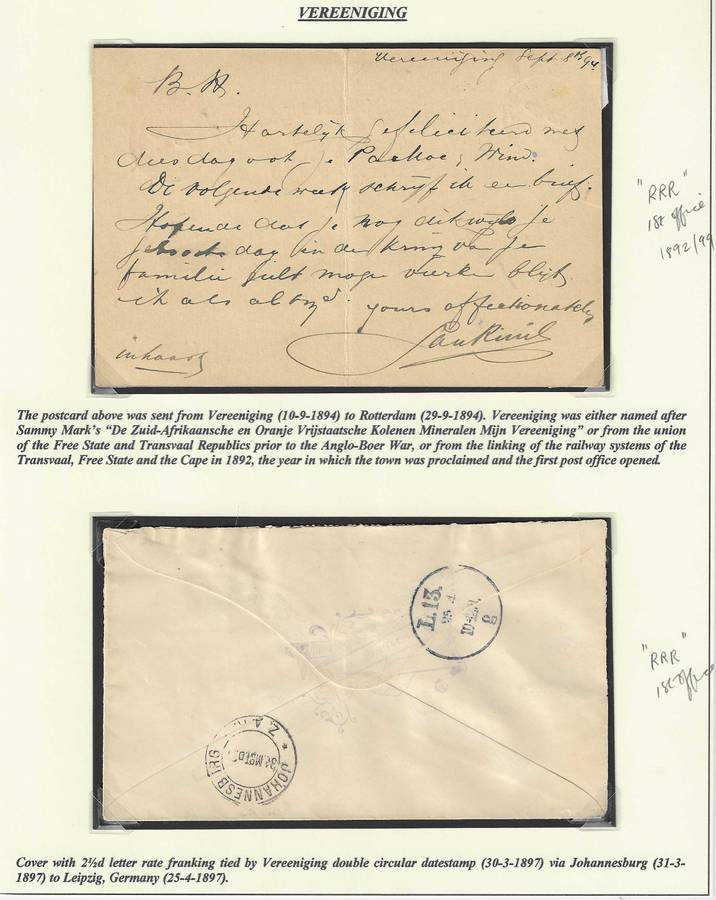 VEREENIGING
Vereeniging Sept 8th 94
B. H.
Hartelijk gefeliciteerd met
deesdag ook je Pa & Moe,
De volgende week schrijf ik een brief.
Hopende dat je nog dikwyls je
dag in de kring van je
familie mogen vieren blijf
ik als altyd. yours affectionately
in haast
"RRR"
1st office
1892/99
The postcard above was sent from Vereeniging (10-9-1894) to Rotterdam (29-9-1894). Vereeniging was either named after
Sammy Mark's "De Zuid-Afrikaansche en Oranje Vrijstaatsche Kolenen Mineralen Mijn Vereeniging" or from the union
of the Free State and Transvaal Republics prior to the Anglo-Boer War, or from the linking of the railway systems of the
Transvaal, Free State and the Cape in 1892, the year in which the town was proclaimed and the first post office opened.
L.13.
25 4.
g
"RRR"
1st office
Z.A.R.
JOHANNESBURG
Cover with 2½d letter rate franking tied by Vereeniging double circular datestamp (30-3-1897) via Johannesburg (31-3-
1897) to Leipzig, Germany (25-4-1897).